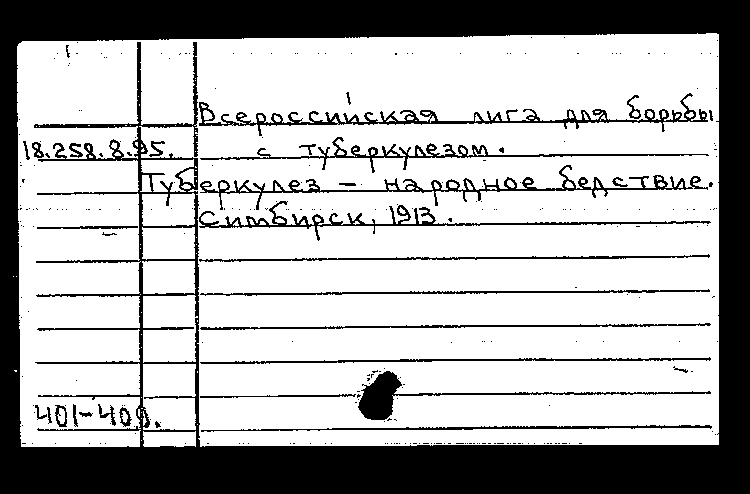 Всероссийская лига для борьбы
18.258.8.95. с туберкулезом.
Туберкулез — народное бедствие.
Симбирск, 1913.
401-409.